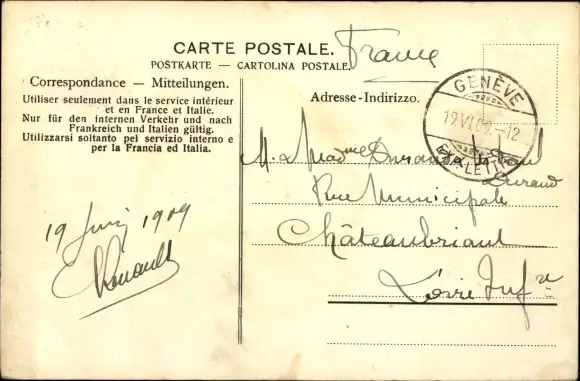 CARTE POSTALE.
France
POSTKARTE — CARTOLINA POSTALE.
Correspondance — Mitteilungen.
Utiliser seulement dans le service intérieur
et en France et Italie.
Nur für den internen Verkehr und nach
Frankreich und Italien gültig.
Utilizzarsi soltanto pel servizio interno e
per la Francia ed Italia.
Adresse-Indirizzo.
GENÈVE
19.VI.09.-12
EXP. LETT.
M. & Mad me Durand
Durand
Rue Municipale
Châteaubriant
Loire Inf re
19 Juin 1909